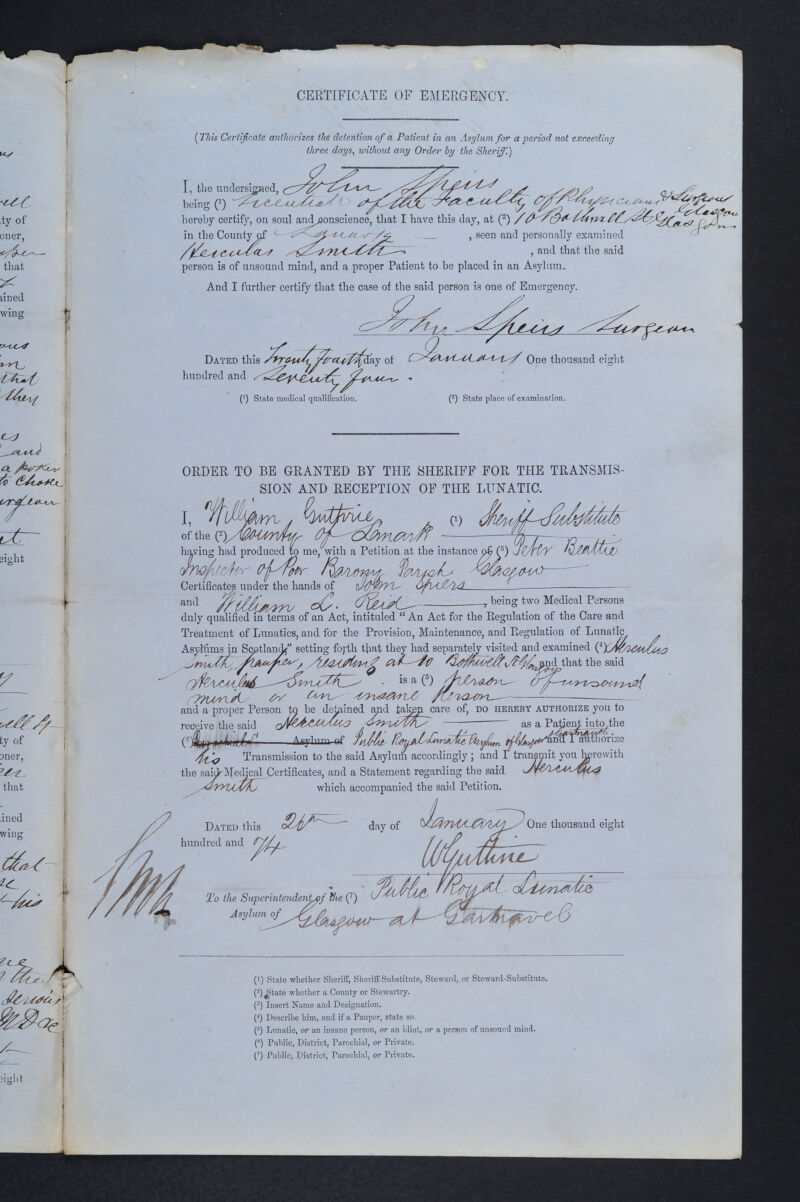 CERTIFICATE OF EMERGENCY.
(This Certificate authorizes the detention of a Patient in an Asylum for a period not exceeding
three days, without any Order by the Sheriff.)
I, the undersigned, John Speirs
being (¹) Licentiate of the Faculty of Physicians & Surgeons
Glasgow
hereby certify, on soul and conscience, that I have this day, at (²) 10 Bothwell St Glasgow
in the County of Lanark , seen and personally examined
Herculus Smith , and that the said
person is of unsound mind, and a proper Patient to be placed in an Asylum.
And I further certify that the case of the said person is one of Emergency.
John Speirs Surgeon
DATED this Twenty fourth day of January One thousand eight
hundred and Seventy four.
(¹) State medical qualification. (²) State place of examination.
ORDER TO BE GRANTED BY THE SHERIFF FOR THE TRANSMIS-
SION AND RECEPTION OF THE LUNATIC.
I, William Guthrie (¹) Sheriff Substitute
of the (²) County of Lanark
having had produced to me, with a Petition at the instance of (³) Peter Beattie
Inspector of Poor Barony Parish Glasgow
Certificates under the hands of John Spiers
and William L. Reid , being two Medical Persons
duly qualified in terms of an Act, intituled "An Act for the Regulation of the Care and
Treatment of Lunatics, and for the Provision, Maintenance, and Regulation of Lunatic
Asylums in Scotland," setting forth that they had separately visited and examined (⁴) Herculus
Smith pauper, residing at 10 Bothwell St Glasgow and that the said
Herculus Smith is a (⁵) person of unsound
mind or an insane person
and a proper Person to be detained and taken care of, DO HEREBY AUTHORIZE you to
receive the said Herculus Smith as a Patient into the
(⁶) Asylum of Public Royal Lunatic Asylum of Glasgow at Gartnavel and I authorize
his Transmission to the said Asylum accordingly; and I transmit you herewith
the said Medical Certificates, and a Statement regarding the said Herculus
Smith which accompanied the said Petition.
DATED this 26th day of January One thousand eight
hundred and 74
W Guthrie
To the Superintendent of the (⁷) Public Royal Lunatic
Asylum of Glasgow at Gartnavel
(¹) State whether Sheriff, Sheriff-Substitute, Steward, or Steward-Substitute.
(²) State whether a County or Stewartry.
(³) Insert Name and Designation.
(⁴) Describe him, and if a Pauper, state so.
(⁵) Lunatic, or an insane person, or an idiot, or a person of unsound mind.
(⁶) Public, District, Parochial, or Private.
(⁷) Public, District, Parochial, or Private.
ty of
oner,
that
ained
wing
that
they
and
a poker
to choke
urgeon
eight
ty of
oner,
that
ained
wing
that
his
serious
eight